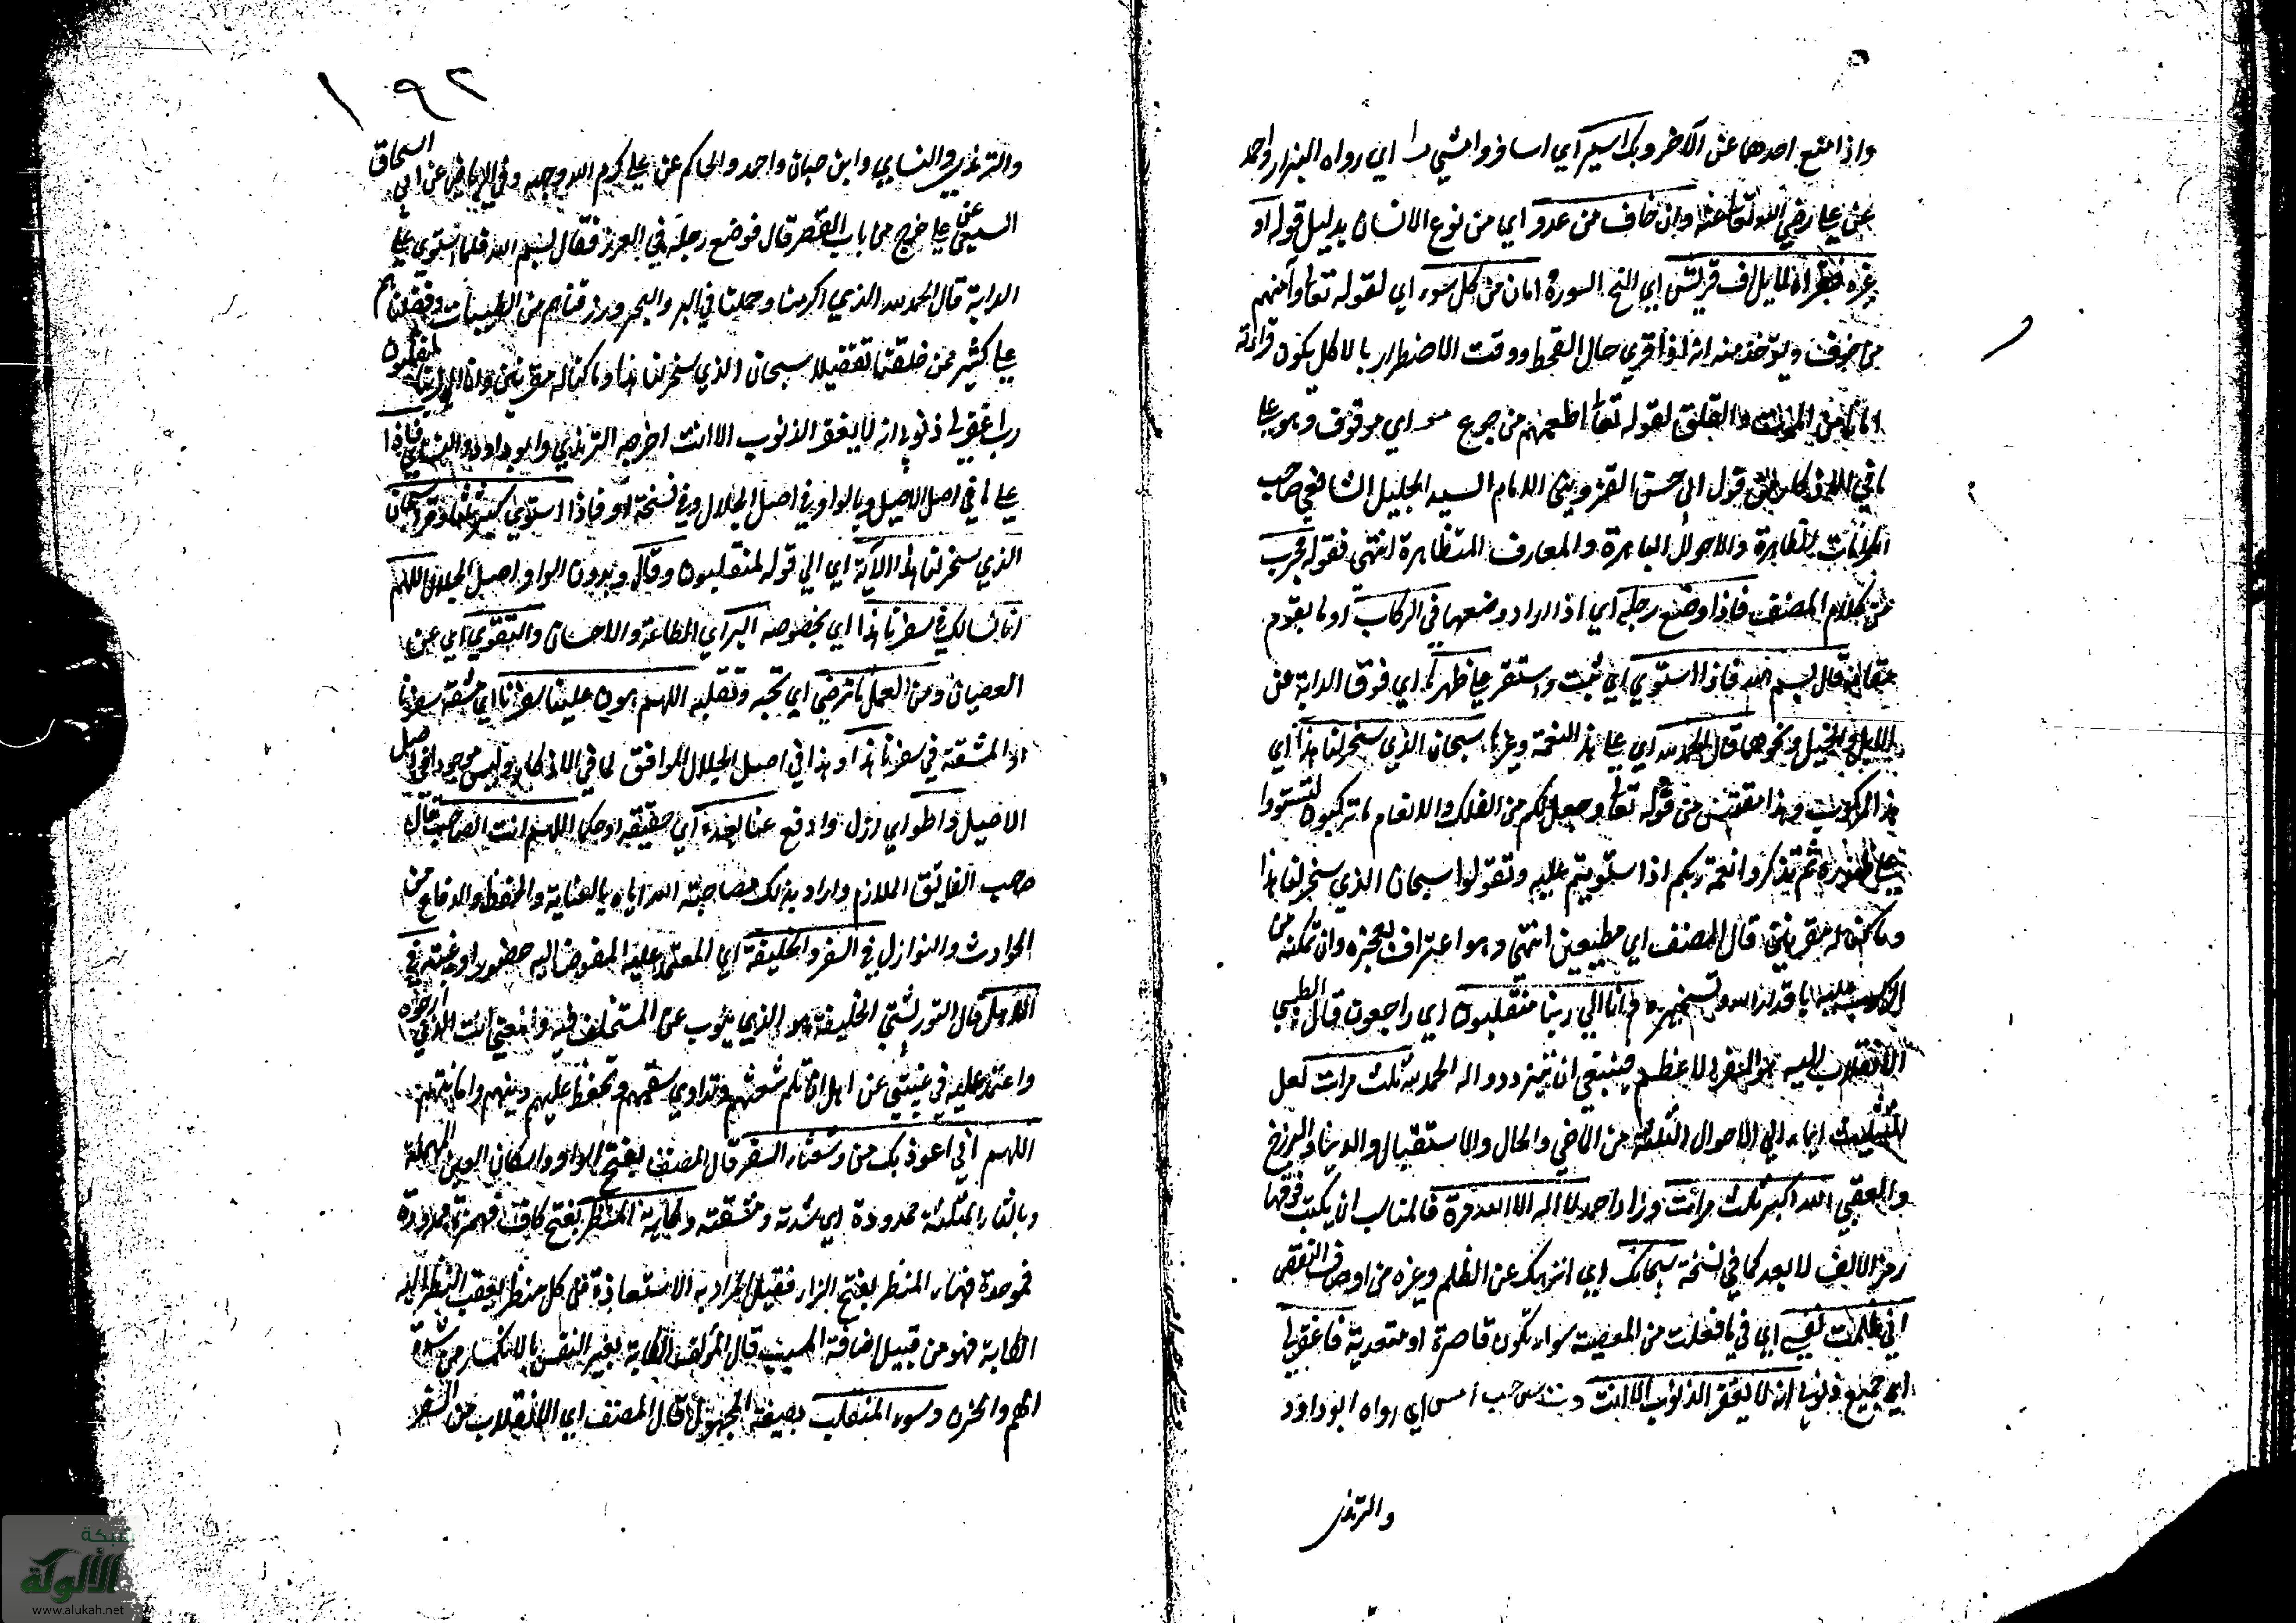 واذا امتنع احدهما عن الآخر وبك اسير اي اسافر وامشي ر ا اي رواه البزار واحمد
عن علي رضي الله تعا عنه وان خاف من عدو اي من نوع الانسان بدليل قوله او
غيره فقراءة لايلاف قريش اي الخ السورة امان من كل سوء اي لقوله تعا وآمنهم
من خوف ويؤخذ منه انه لو قرئ حال القحط ووقت الاضطرار بالاكل يكون قراءته
امانا من والقلق لقوله تعا اطعمهم من جوع مو اي موقوف وهو على
ما في الاذكار من قول ابي حسن القزويني الامام السيد الجليل الشافعي صاحب
الكرامات الظاهرة والاحوال الباهرة والمعارف المتظاهرة انتهى فقوله مجرب
من كلام المصنف فاذا وضع رجله اي اذا اراد وضعها في الركاب او ما يقوم
مقامه قال بسم الله فاذا استوى اي ثبت واستقر على ظهرها اي فوق الدابة من
الابل والخيل ونحوهما قال الحمد لله اي على هذا النعمة وغيرها سبحان الذي سخر لنا هذا اي
هذا المركوب وهذا مقتبس من قوله تعا وجعل لكم من الفلك والانعام ما تركبون لتستووا
على ظهوره ثم تذكروا نعمة ربكم اذا استويتم عليه وتقولوا سبحان الذي سخر لنا هذا
وما كنا له مقرنين قال المصنف اي مطيعين انتهى وهو اعتراف بعجزه وان تمكنه من
الركوب عليه باقدار الله وتسخيره وانا الى ربنا لمنقلبون اي راجعون قال الطيبي
الانقلاب اليه هو السفر الاعظم فينبغي ان يتزود له الحمد لله ثلث مرات لعل
التثليث ايماء الى الاحوال الثلثة من الماضي والحال والاستقبال والدنيا والبرزخ
والعقبى الله اكبر ثلث مرات وزاد احمد لا اله الا الله مرة فالمناسب ان يكتب فوقها
رمز الالف لا بعد كما في نسخة سبحانك اي انزهك عن الظلم وغيره من اوصاف النقص
اني ظلمت نفسي اي في ما فعلت من المعصية سواء تكون قاصرة او متعدية فاغفر لي
اي جميع ذنوبي انه لا يغفر الذنوب الا انت د ت س حب ا مس اي رواه ابو داود
والترمذي
١٩٢
والترمذي والنسايي وابن حبان واحمد والحاكم عن علي كرم الله وجهه وفي الرياض عن ابي اسحاق
السبيعي عن علي خرج من باب القصر قال فوضع رجله في الغرز فقال بسم الله فلما استوى على
الدابة قال الحمد لله الذي اكرمنا وحملنا في البر والبحر ورزقنا من الطيبات وفضلنا
على كثير ممن خلقنا تفضيلا سبحان الذي سخر لنا هذا وما كنا له مقرنين وانا الى ربنا لمنقلبون
رب اغفر لي ذنوبي انه لا يغفر الذنوب الا انت اخرجه الترمذي وابو داود والنسائي فاذا
على ما في اصل الاصيل وبالواو في اصل الجلال وفي نسخة او فاذا استوى كبر ثلثا وقرأ سبحان
الذي سخر لنا هذا الآية اي الى قوله لمنقلبون وقال وبدون الواو اصل الجلال اللهم
انا نسالك في سفرنا هذا اي بخصوصه البر اي الطاعة والاحسان والتقوى اي عن
العصيان ومن العمل ما ترضى اي تحبه وتقبله اللهم هون علينا سفرنا اي مشقة سفرنا
او المشقة في سفرنا هذا وهذا في اصل الجلال الموافق لما في الاذكار وليس موجودا في اصل
الاصيل واطو اي ازل وادفع عنا بعده اي حقيقة او حكما اللهم انت الصاحب قال
صاحب الفائق الملازم واراد بذلك مصاحبة الله اياه بالعناية والحفظ والدفاع من
الحوادث والنوازل في السفر والخليفة اي المعتمد عليه المفوض اليه حضورا وغيبة في
الاهل قال التوربشتي الخليفة هو الذي ينوب عن المستخلف فيه والمعنى انت الذي ارجوه
واعتمد عليه في غيبتي عن اهلي ان تلم شعثهم وتداوي سقمهم وتحفظ عليهم دينهم وامانتهم
اللهم اني اعوذ بك من وعثاء السفر قال المصنف بفتح الواو واسكان العين المهملة
وبالثاء المثلثة ممدودة اي شدته ومشقته وكآبة المنظر بفتح كاف فهمزة ممدودة
فموحدة فهاء المنظر بفتح الزاء فقيل المراد به الاستعاذة من كل منظر يعقب النظر اليه
الكابة فهو من قبيل اضافة المسبب قال المؤلف الكابة تغير النفس بالانكسار من شدة
الهم والحزن وسوء المنقلب بصيغة المجهول قال المصنف اي الانقلاب من السفر
شبكة
الألوكة
www.alukah.net